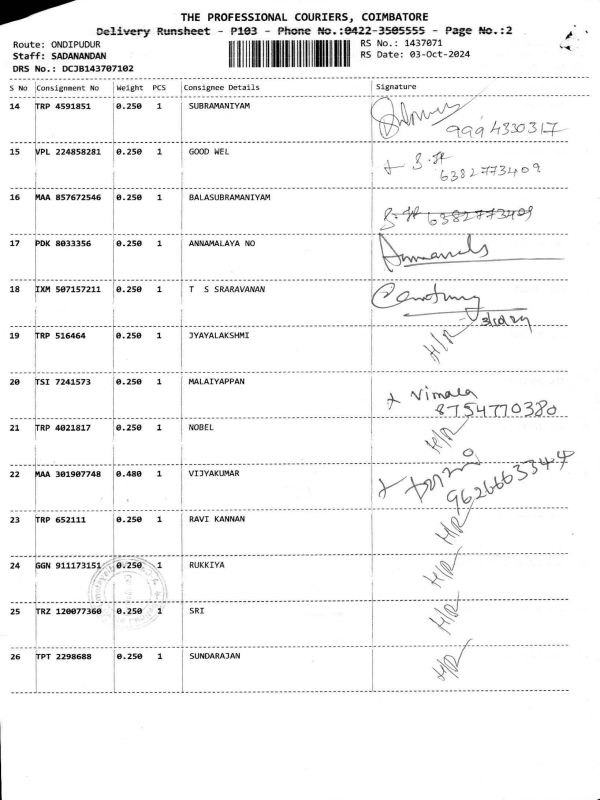 THE PROFESSIONAL COURIERS, COIMBATORE
Delivery Runsheet - P103 - Phone No.:0422-3505555 - Page No.:2
Route: ONDIPUDUR
RS No.: 1437071
Staff: SADANANDAN
RS Date: 03-Oct-2024
DRS No.: DCJB143707102
S No Consignment No Weight PCS Consignee Details Signature
14 TRP 4591851 0.250 1 SUBRAMANIYAM
9994330317
15 VPL 224858281 0.250 1 GOOD WEL
6382773409
16 MAA 857672546 0.250 1 BALASUBRAMANIYAM
6382773409
17 PDK 8033356 0.250 1 ANNAMALAYA NO
18 IXM 507157211 0.250 1 T S SRARAVANAN
3/10/24
19 TRP 516464 0.250 1 JYAYALAKSHMI H/R
20 TSI 7241573 0.250 1 MALAIYAPPAN Vimala
8754770380
21 TRP 4021817 0.250 1 NOBEL H/R
22 MAA 301907748 0.480 1 VIJYAKUMAR
9626663344
23 TRP 652111 0.250 1 RAVI KANNAN H/R H/R
24 GGN 911173151 0.250 1 RUKKIYA H/R
25 TRZ 120077360 0.250 1 SRI H/R
26 TPT 2298688 0.250 1 SUNDARAJAN H/R